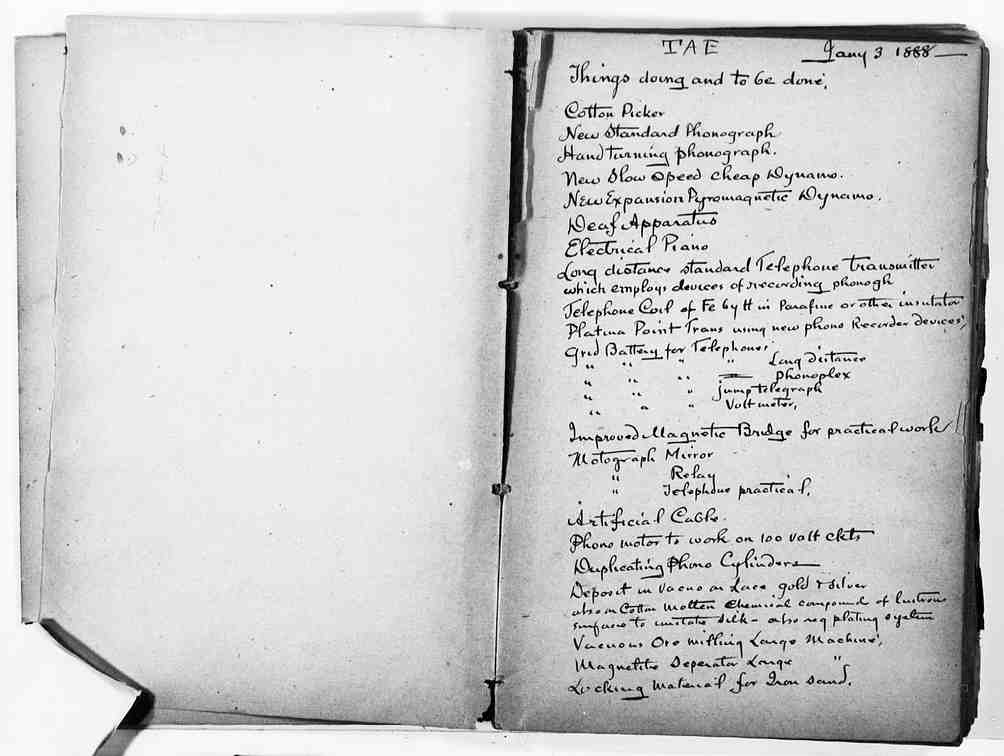 TAE Jany 3 1888
Things doing and to be done.
Cotton Picker
New Standard Phonograph
Hand turning phonograph.
New Slow Speed cheap Dynamo.
New Expansion Pyromagnetic Dynamo.
Deaf Apparatus
Electrical Piano
Long distance standard Telephone Transmitter
which employs devices of recording phonogh
Telephone Coil of Fe by H in Parafine or other insulator
Platina Point Trans using new phono Recorder devices,
Grid Battery for Telephones.
" " " " Long distance
" " " Phonoplex
" " " jump telegraph
" " " Voltmeter,
Improved Magnetic Bridge for practical work
Motograph Mirror
" Relay
" Telephone practical,
Artificial Cable.
Phono motor to work on 100 volt ckts
Duplicating Phono Cylinders
Deposit in vacuo on Lace gold & silver
also on Cotton Molten Chemical compound of lustrous
surface to imitate silk - also reg plating system
Vacuous Ore milling Large Machine,
Magnetite Seperator Large "
Locking Material for Iron sand,